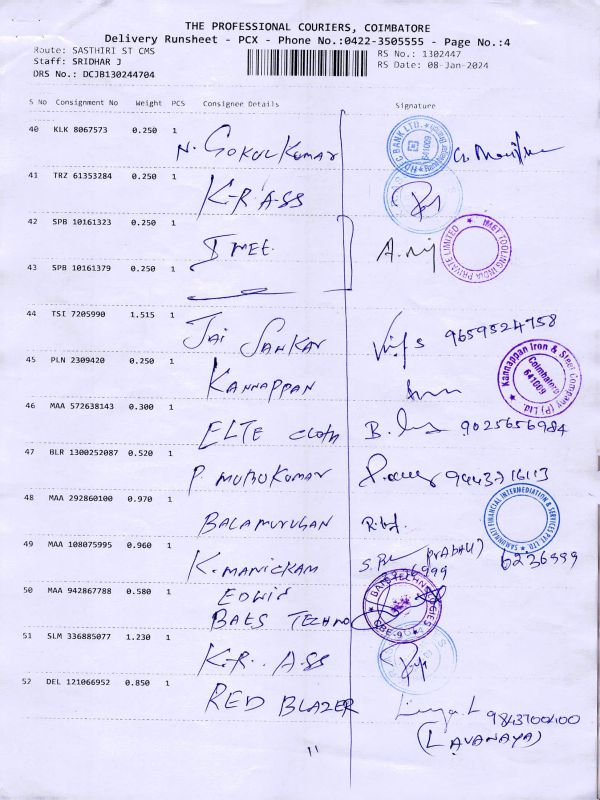 THE PROFESSIONAL COURIERS, COIMBATORE
Delivery Runsheet - PCX - Phone No.:0422-3505555 - Page No.:4
Route: SASTHIRI ST CMS
Staff: SRIDHAR J
DRS No.: DCJB130244704
RS No.: 1302447
RS Date: 08-Jan-2024
S No Consignment No Weight PCS Consignee Details Signature
40 KLK 8067573 0.250 1
N. GOKUL KUMAR
HDFC BANK LTD. 641009
41 TRZ 61353284 0.250 1
K-R ASS
42 SPB 10161323 0.250 1
IMEE
IMET TOOLING INDIA PRIVATE LIMITED
43 SPB 10161379 0.250 1
44 TSI 7205990 1.515 1
JAI SANKAR 9659524758
45 PLN 2309420 0.250 1
KANNAPPAN
Kannappan Iron & Steel Company (P) Ltd. Coimbatore 641009
46 MAA 572638143 0.300 1
ELTE CLOTH 9025656984
47 BLR 1300252087 0.520 1
P. MURUKUMAR
48 MAA 292860100 0.970 1
BALAMURUGAN
FINANCIAL INTERMEDIATION & SERVICES PVT. LTD.
49 MAA 108075995 0.960 1
K. MANICKAM (PRABHU) 6236999
50 MAA 942867788 0.580 1
EDWIN
BAES TECHNO
TECHNOLOGIES CBE-9
51 SLM 336885077 1.230 1
K-R. ASS
52 DEL 121066952 0.850 1
RED BLAZER
(LAVANAYA)
11